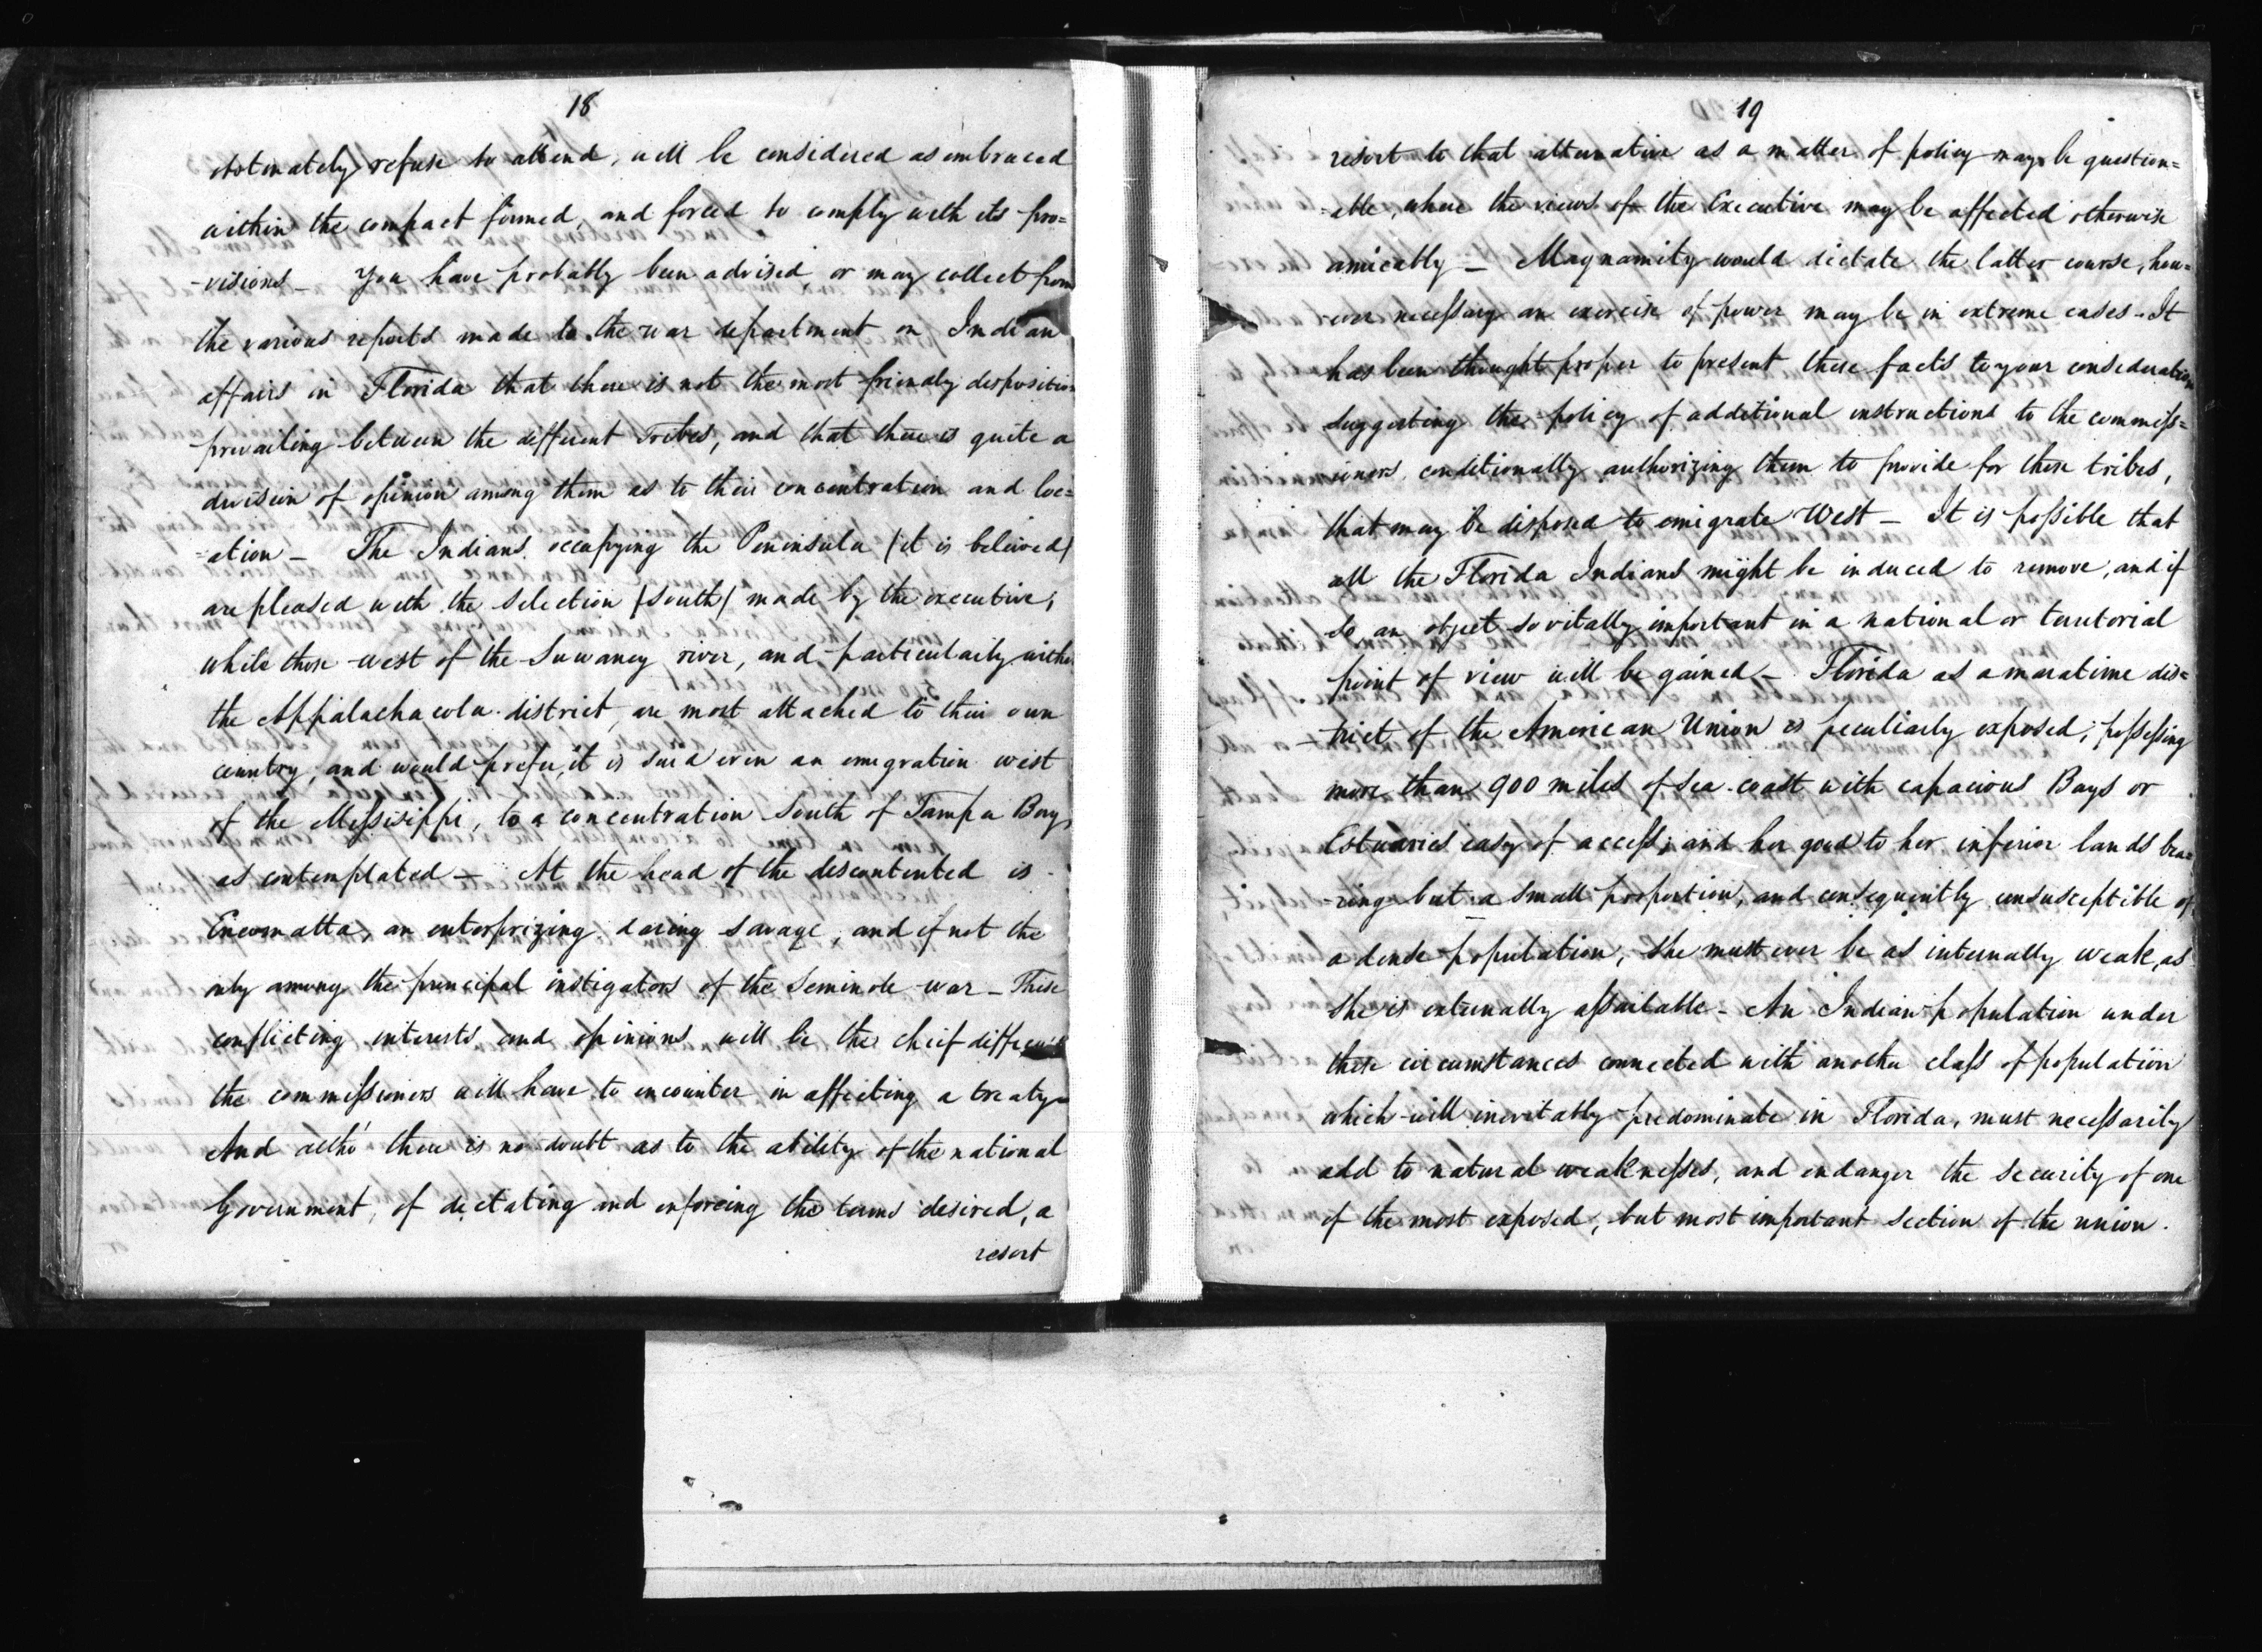 18
obstinately refuse to attend, will be considered as embraced
within the compact formed, and forced to comply with its pro=
-visions – You have probably been advised, or may collect from
the various reports made to the war department on Indian
affairs in Florida that there is not the most friendly disposition
prevailing between the different Tribes, and that there is quite a
division of opinion among them as to their concentration and loc=
=ation – The Indians occupying the Peninsula (it is believed)
are pleased with the selection (South) made by the executive;
while those west of the Suwaney river, and particularily within
the Appalachacola district, are most attached to their own
country, and would prefer, it is said even an emigration west
of the Messisippi, to a concentration South of Tampa Bay,
as contemplated – At the head of the discontented is
Eneornatta, an enterprizing daring savage, and if not the
only among the principal instigators of the Seminole war – These
conflicting interests and opinions will be the chief difficult
the commissioners will have to encounter in affecting a treaty –
And altho' there is no doubt as to the ability of the national
Government, of dictating and enforcing the terms desired, a
resort
19
resort to that alternative as a matter of policy may be question=
=able, where the views of the Executive may be affected otherwise
amicably – Magnamity would dictate the latter course, how=
-ever necessary an exercise of power may be in extreme cases – It
has been thought proper to present these facts to your consideration
suggesting the policy of additional instructions to the commiss=
ioners, conditionally authorizing them to provide for those tribes,
that may be disposed to emigrate West – It is possible that
all the Florida Indians might be induced to remove, and if
so, an object so vitally important in a national or territorial
point of view will be gained – Florida as a maratime dis=
-trict of the American Union is peculiarly exposed; possessing
more than 900 miles of sea coast with capacious Bays or
Estuaries easy of access; and her good to her inferior lands bea=
-ring but a small proportion, and consequently unsusceptible of
a dense population, she must ever be as internally weak, as
she is externally assailable – An Indian population under
these circumstances connected with another class of population
which will inevitably predominate in Florida, must necessarily
add to natural weaknesses, and endanger the security of one
of the most exposed, but most important section of the union.